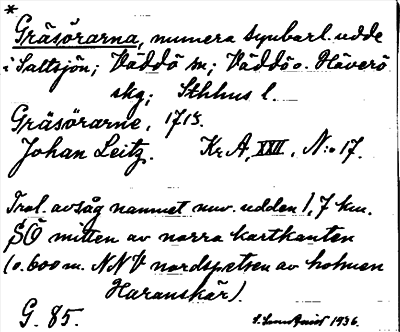 *
Gräsörarna, numera synbarl. udde
i Saltsjön; Väddö sn; Väddö o. Häverö
skg; Sthlms l.
Gräsörarne. 1713.
Johan Leitz. Kr A, XXII, N:o 17.
Trol. avsåg namnet nuv. udden 1,7 km.
SÖ mitten av norra kartkanten
(o. 600 m. NNV nordspetsen av holmen
Haranskär).
G. 85.
1936.